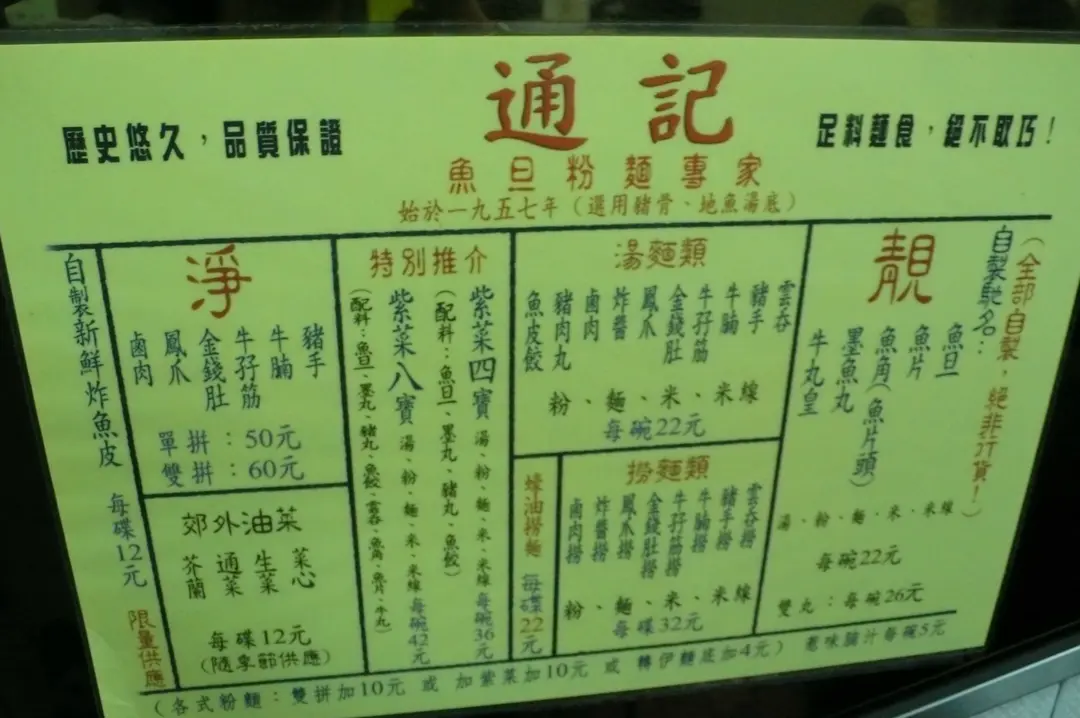 通記
歷史悠久，品質保證
足料麵食，絕不取巧！
魚旦粉麵專家
始於一九五七年（選用豬骨、地魚湯底）
（全部自製，絕非行貨！）
自製馳名：
靚
魚旦
魚片
魚角（魚片頭）
墨魚丸
牛丸皇
湯、粉、麵、米、米線
每碗22元
雙丸：每碗26元
湯麵類
雲吞
豬手
牛腩
牛孖筋
金錢肚
鳳爪
炸醬
鹵肉
豬肉丸
魚皮餃
粉、麵、米、米線
每碗22元
撈麵類
雲吞撈
豬手撈
牛腩撈
牛孖筋撈
金錢肚撈
鳳爪撈
炸醬撈
鹵肉撈
粉、麵、米、米線
每碟32元
蠔油撈麵 每碟22元
特別推介
紫菜四寶 湯、粉、麵、米、米線 每碗36元
（配料：魚旦、墨丸、豬丸、魚餃）
紫菜八寶 湯、粉、麵、米、米線 每碗42元
（配料：魚旦、墨丸、豬丸、魚餃、雲吞、魚角、魚片、牛丸）
淨
豬手
牛腩
牛孖筋
金錢肚
鳳爪
鹵肉
單拼：50元
雙拼：60元
郊外油菜
菜心
生菜
通菜
芥蘭
每碟12元
（隨季節供應）
自製新鮮炸魚皮 每碟12元 限量供應
（各式粉麵：雙拼加10元 或 加紫菜加10元 或 轉伊麵底加4元） 蔥味腩汁每碗5元